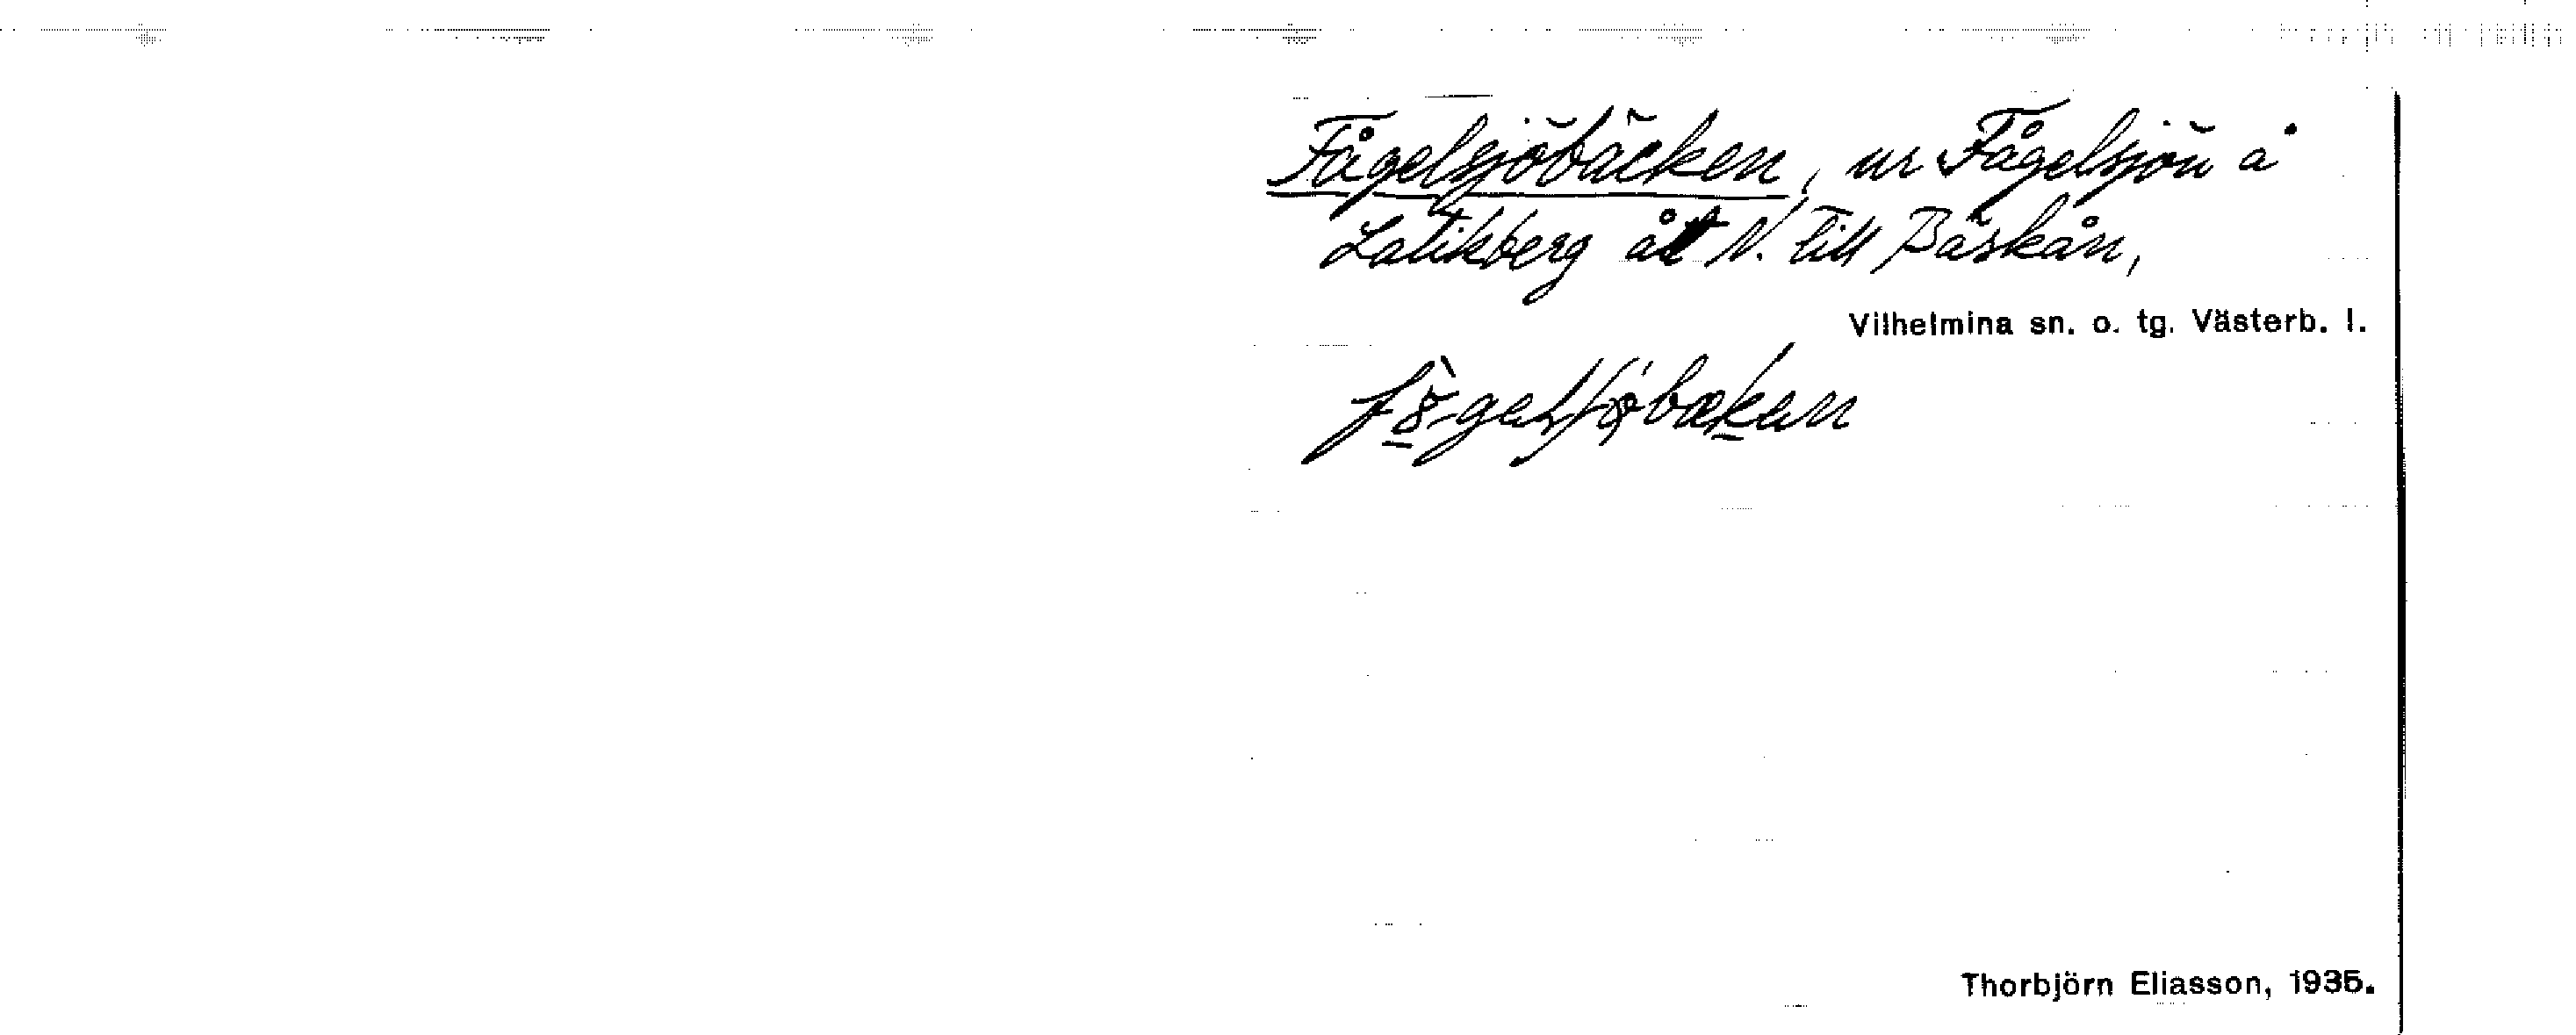 Fågelsjöbäcken, ur Fågelsjön å
Latikberg åt N. till Bäskån,
Vilhelmina sn. o. tg. Västerb. l.
Thorbjörn Eliasson, 1935.